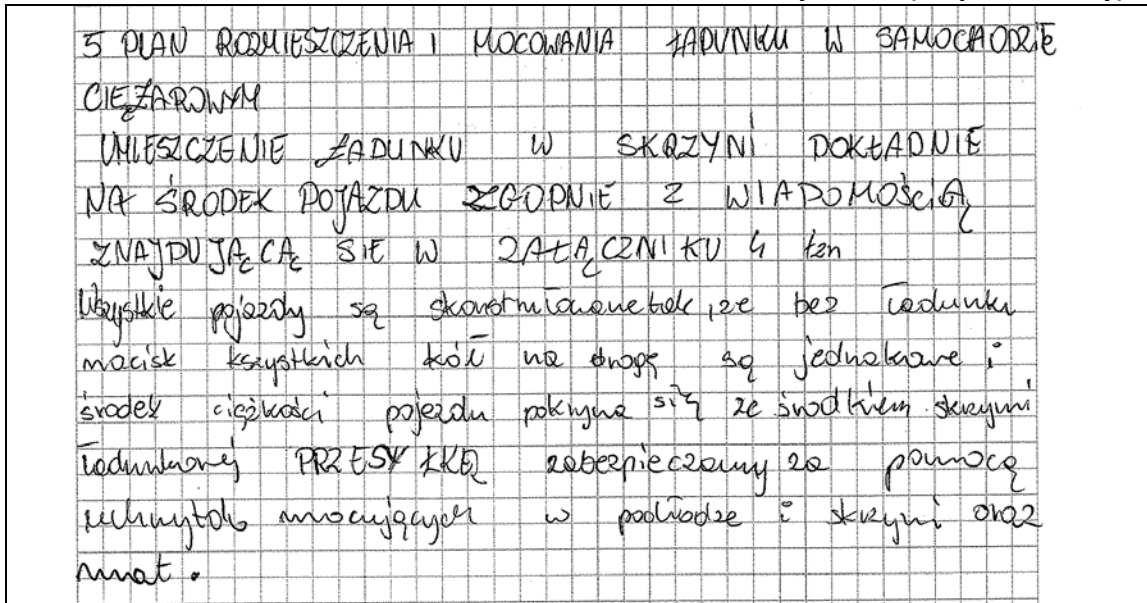 5 PLAN ROZMIESZCZENIA I MOCOWANIA ŁADUNKU W SAMOCHODZIE
CIĘŻAROWYM
UMIESZCZENIE ŁADUNKU W SKRZYNI DOKŁADNIE
NA ŚRODEK POJAZDU ZGODNIE Z WIADOMOŚCIĄ
ZNAJDUJĄCĄ SIE W ZAŁĄCZNIKU 4 tzn
Wszystkie pojazdy są skonstruowane tak, ze bez ładunku
nacisk wszystkich kół na drogę są jednakowe i
środek ciężkości pojazdu pokrywa się ze środkiem skrzyni
ładunkowej PRZESYŁKĘ zabezpieczamy za pomocą
uchwytów mocujących w podłodze i skrzyni oraz
mat.